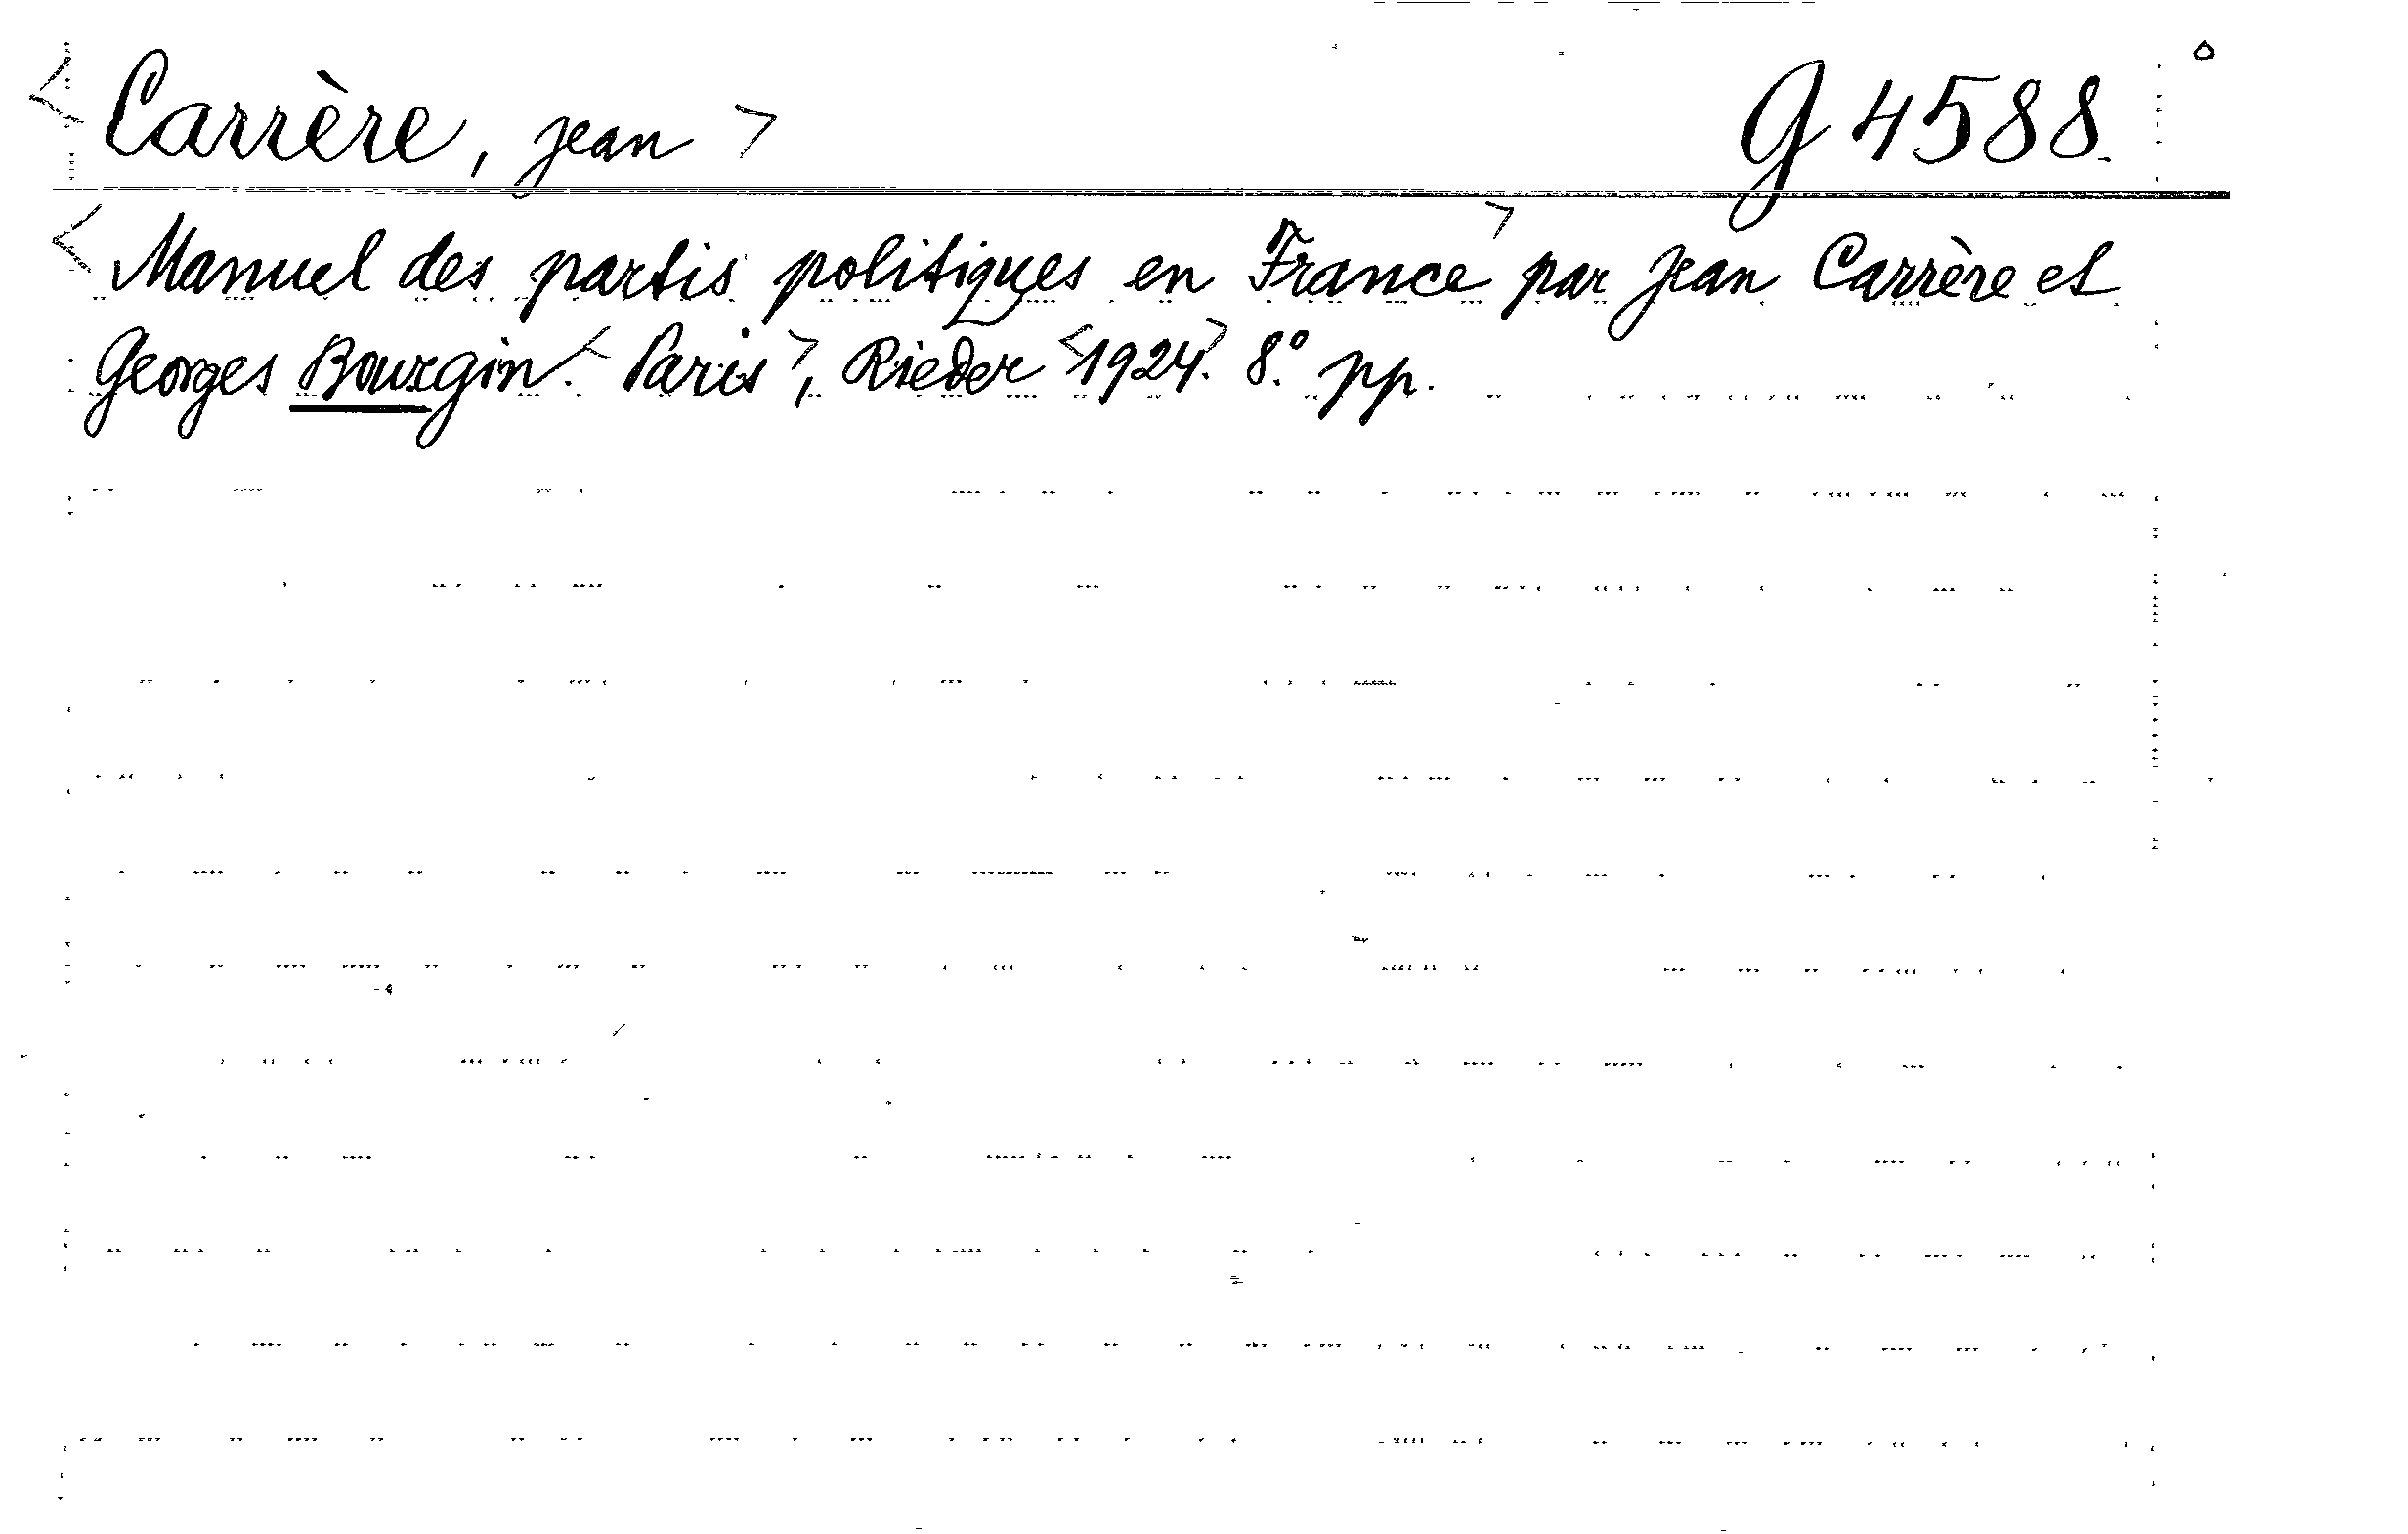 <Carrère, Jean> G 4588.
<Manuel des partis politiques en France> par Jean Carrère et
Georges Bourgin. <Paris>, Rieder <1924>. 8.º pp.